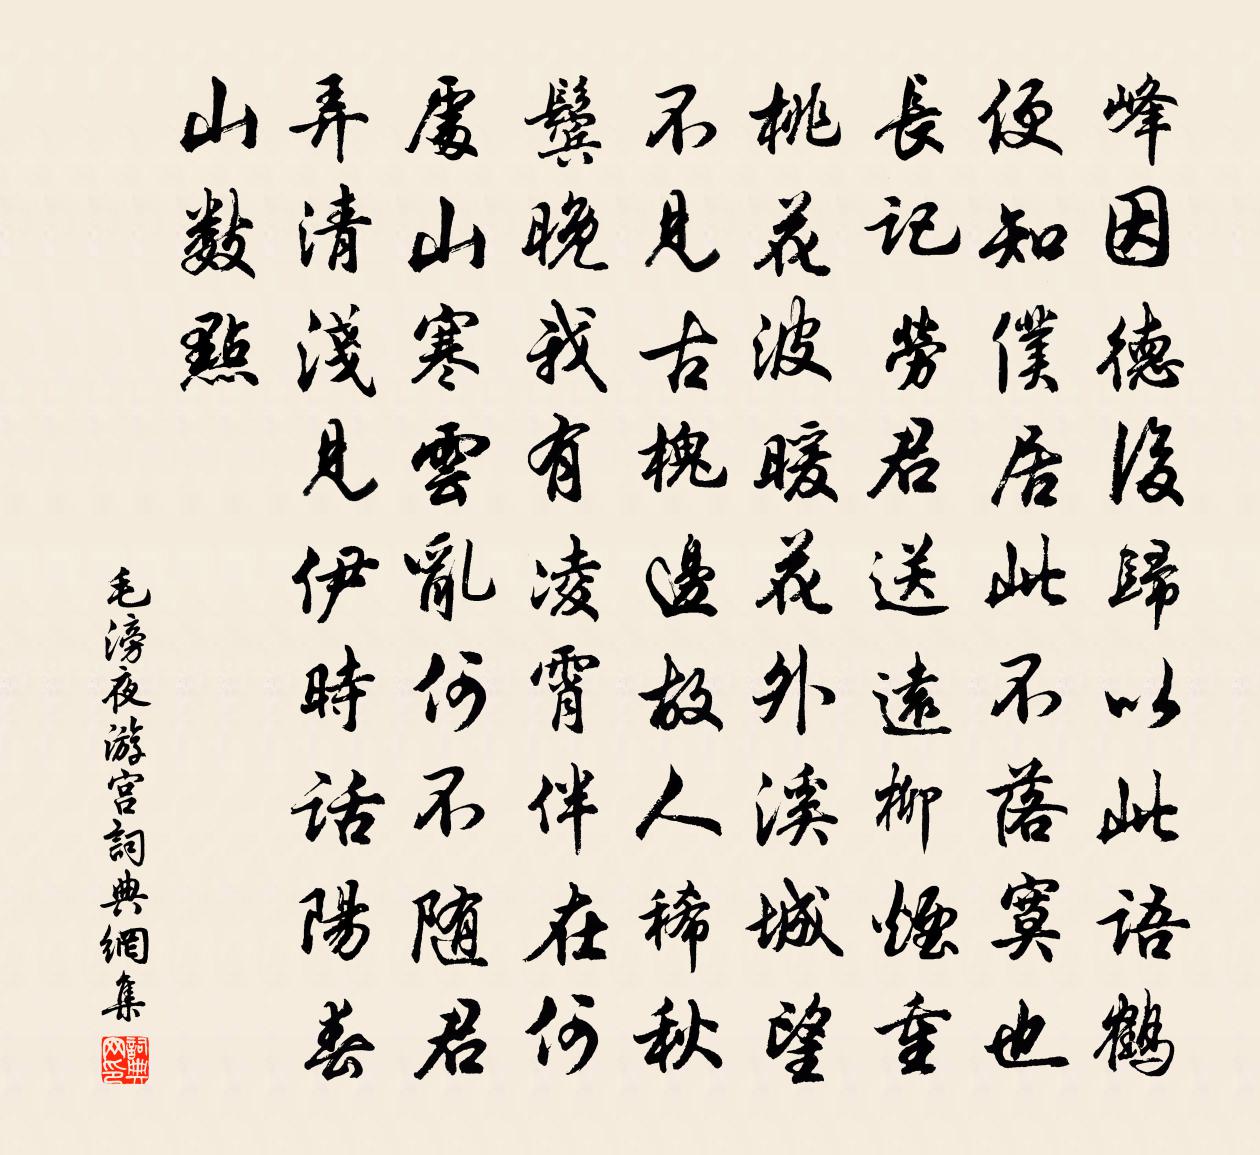 峰因德浚歸以此語鶴
便知僕居此不落寞也
長記勞君送遠柳煙重
桃花波暖花外溪城望
不見古槐邊故人稀秋
鬢晚我有凌霄伴在何
處山寒雲亂何不随君
弄清淺見伊時話陽春
山數點
毛滂夜游宮詞典網集
詞典网印